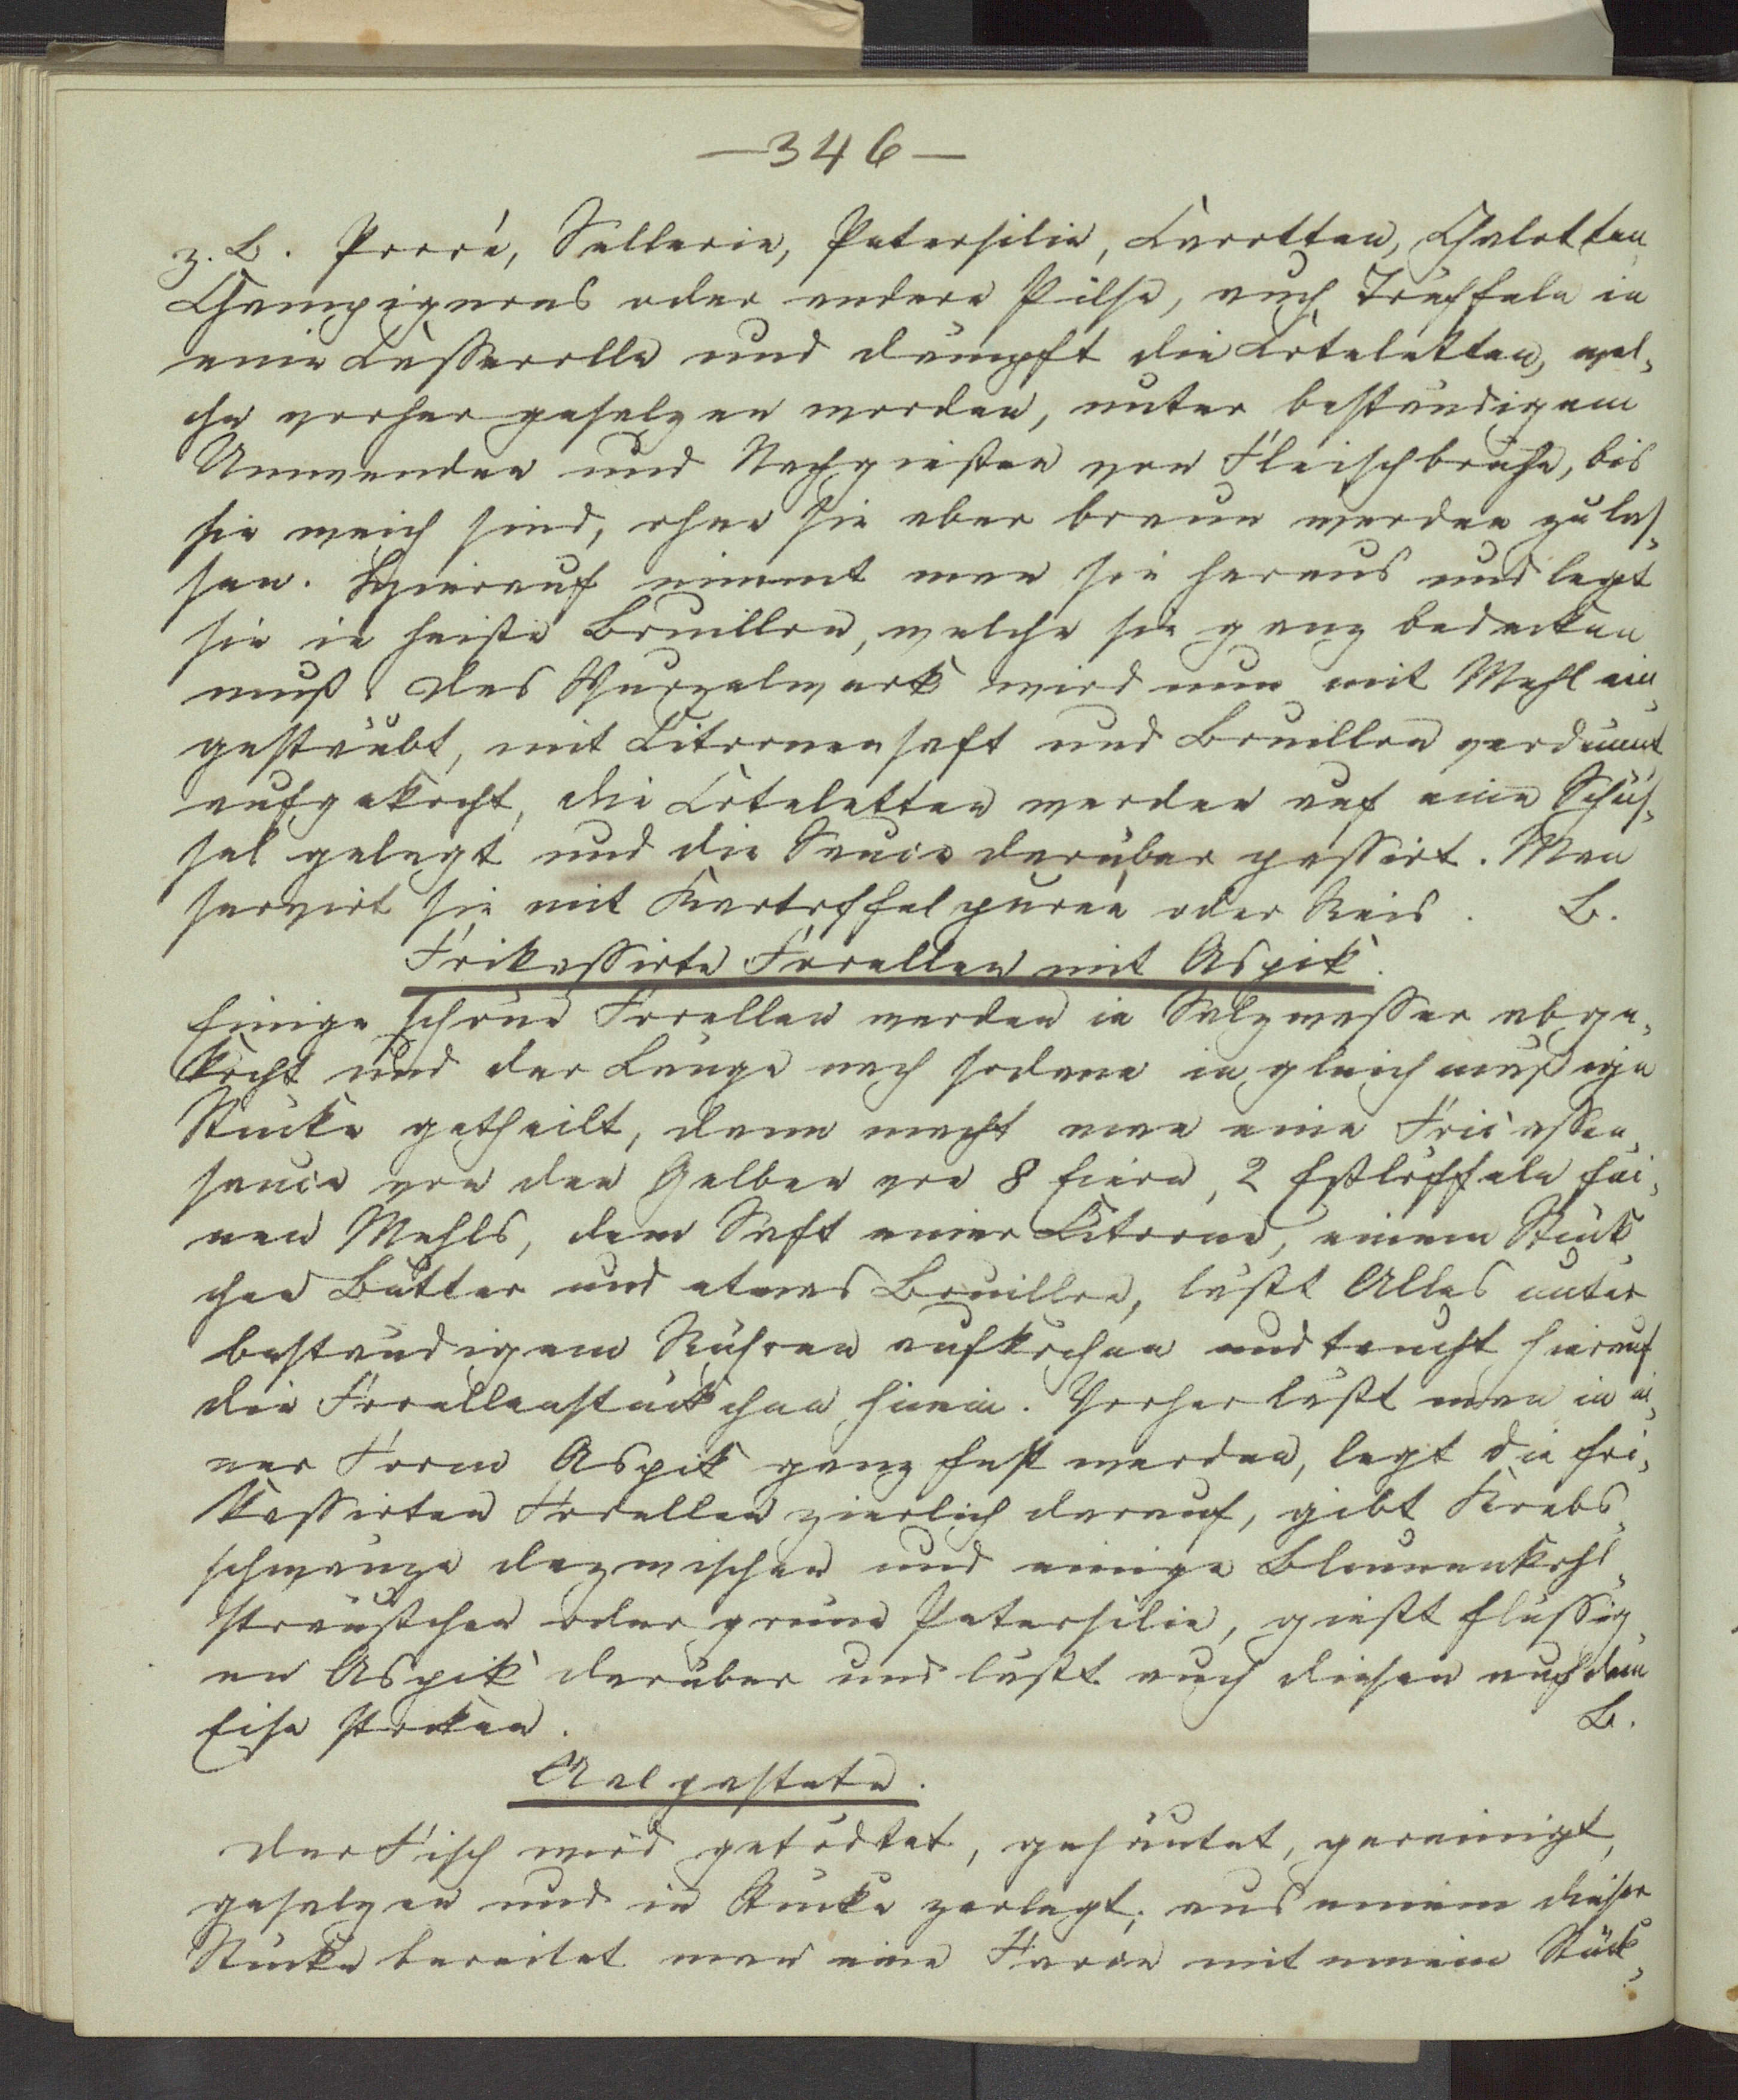 —346—
z. B. Porré, Sellerie, Petersilie, Carotten, Chalotten,
Champignons oder andere Pilse, auch Trüffeln in
eine Casserolle und dämpft die Coteletten, wel-
che vorher gesalzen worden, unter beständigem
Umwenden und Nachgießen von Fleischbrühe, bis
sie weich sind, ohne sie aber braun werden zu las-
sen. Hierauf nimmt man sie heraus und legt
sie in heiße Bouillon, welche sie ganz bedecken
muß. Das Wurzelwerk wird nun mit Mehl ein-
gestäubt, mit Citronensaft und Bouillon verdünnt
aufgekocht, die Coteletten werden auf eine Schüs-
sel gelegt und die Sauce darüber passirt. Man
servirt sie mit Kartoffelpurée oder Reis. B.
Frikassirte Forellen mit Aspik.
Einige schöne Forellen werden in Salzwasser abge-
kocht und der Länge nach sodann in gleichmäßige
Stücke getheilt, dann macht man eine Fricassee-
sauce von den Gelben von 8 Eiern, 2 Eßlöffeln fei-
nen Mehls, dem Saft einer Citrone, einem Stück-
chen Butter und etwas Bouillon, läßt Alles unter
beständigem Rühren aufkochen und taucht hierauf
die Forellenstückchen hinein. Vorher läßt man in ei-
ner Form Aspik ganz fest werden, legt die fri-
kassirten Forellen zierlich darauf, gibt Krebs-
schwänze dazwischen und einige Blumenkohl-
sträußchen oder grüne Petersilie, gießt flüssig-
en Aspik darüber und läßt auch diesen auf dem
Eise stocken. B.
Aalpastete.
Der Fisch wird getödtet, gehäutet, gereinigt,
gesalzen und in Stücke zerlegt; aus einem dieser
Stücke bereitet man eine Farce mit einem Stück-